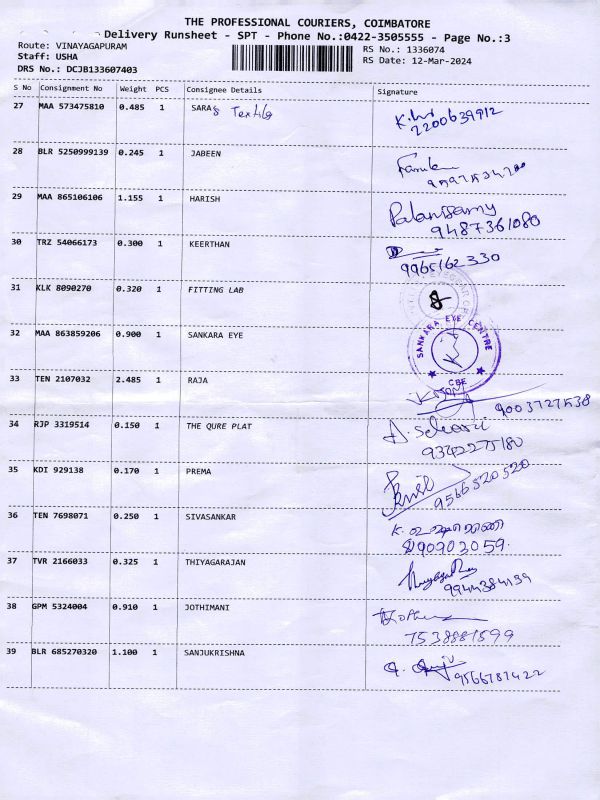 THE PROFESSIONAL COURIERS, COIMBATORE
Delivery Runsheet - SPT - Phone No.:0422-3505555 - Page No.:3
Route: VINAYAGAPURAM RS No.: 1336074
Staff: USHA RS Date: 12-Mar-2024
DRS No.: DCJB133607403
S No Consignment No Weight PCS Consignee Details Signature
27 MAA 573475810 0.485 1 SARAS Textile
2200639912
28 BLR 5250999139 0.245 1 JABEEN
29 MAA 865106106 1.155 1 HARISH Palanisamy
9487361080
30 TRZ 54066173 0.300 1 KEERTHAN
9965162330
31 KLK 8090270 0.320 1 FITTING LAB
32 MAA 863859206 0.900 1 SANKARA EYE
SANKARA EYE CENTRE
CBE
33 TEN 2107032 2.485 1 RAJA
9003727538
34 RJP 3319514 0.150 1 THE QURE PLAT
9342275180
35 KDI 929138 0.170 1 PREMA
9566520520
36 TEN 7698071 0.250 1 SIVASANKAR
37 TVR 2166033 0.325 1 THIYAGARAJAN
9944384139
38 GPM 5324004 0.910 1 JOTHIMANI
7538881599
39 BLR 685270320 1.100 1 SANJUKRISHNA
9566787422